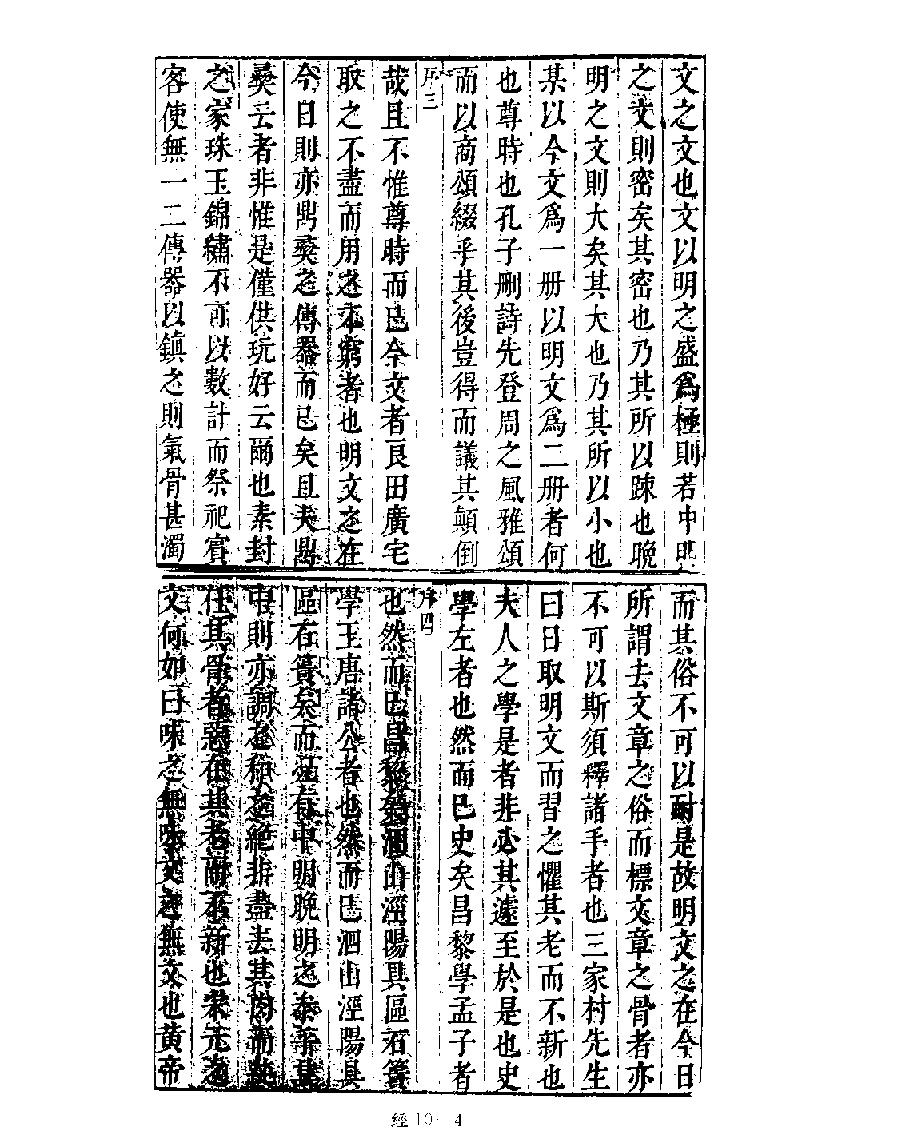 文之文也文以明之盛爲極則若中明
之文則密矣其密也乃其所以踈也晚
明之文則大矣其大也乃其所以小也
某以今文爲一册以明文爲二册者何
也尊時也孔子删詩先登周之風雅頌
而以商頌綴乎其後豈得而議其顛倒
序三
哉且不惟尊時而已今文者良田廣宅
取之不盡而用之不窮者也明文之在
今日則亦鼎彛之傳器而已矣且夫鼎
彛云者非惟是僅供玩好云爾也素封
之家珠玉錦繡不可以數計而祭祀賓
客使無一二傳器以鎮之則氣骨甚濁
而其俗不可以耐是故明文之在今日
所謂去文章之俗而標文章之骨者亦
不可以斯須釋諸手者也三家村先生
曰日取明文而習之懼其老而不新也
夫人之學是者非必其遽至於是也史
學左者也然而巴史矣昌黎學孟子者
序四
也然而巴昌黎矣泗山涇陽具區石簣
學王唐諸公者也然而巴泗山涇陽具
區石簣矣而猶有中明晚明之
則亦調之
其骨者惡在其老而不新也
文何如曰味之無味文之無文也黄帝
經10-4